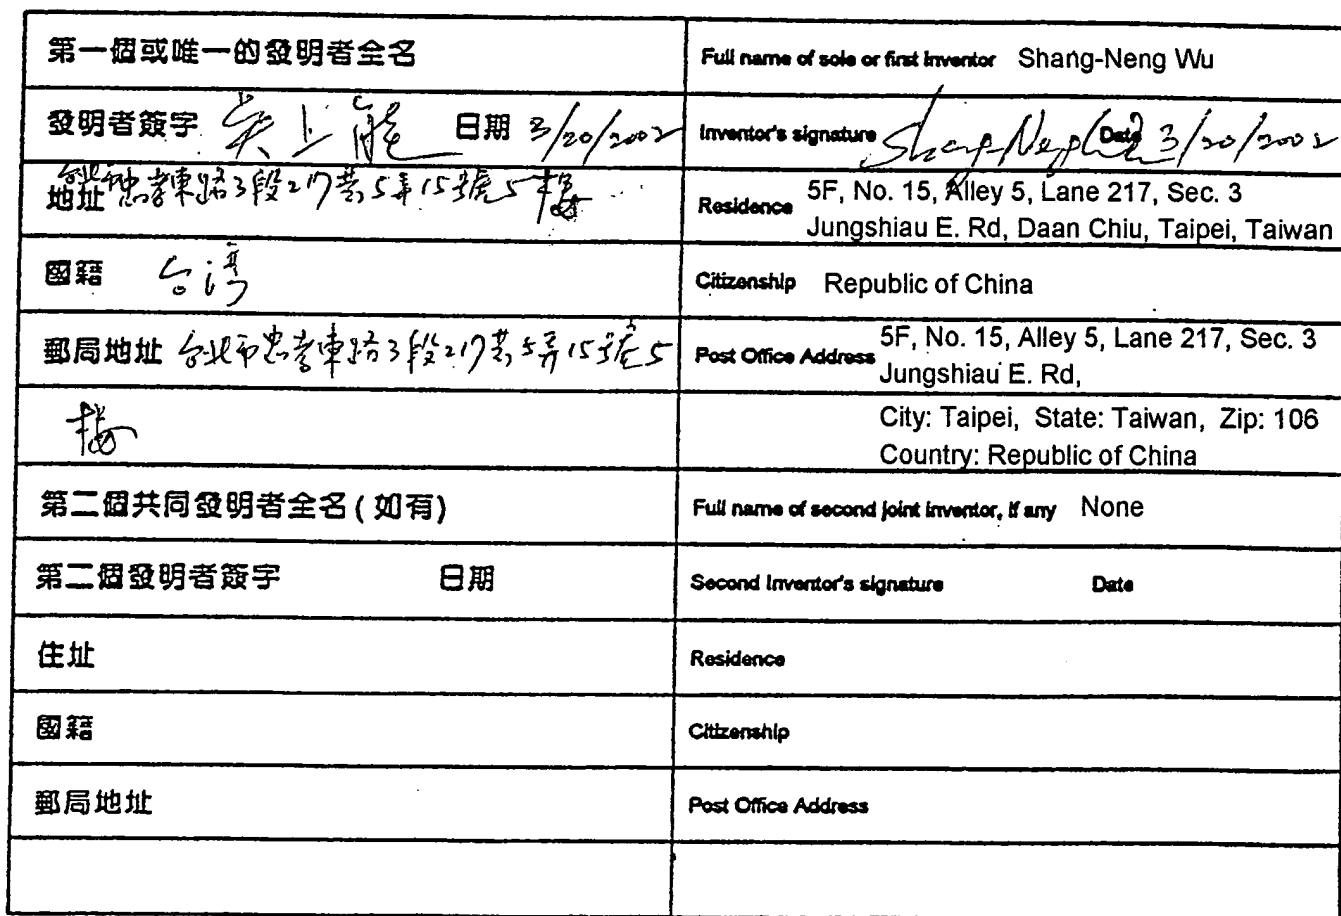 第一個或唯一的發明者全名
Full name of sole or first inventor Shang-Neng Wu
發明者簽字 吳上能 日期 3/20/2002
Inventor's signature Shang-Neng Wu Date 3/20/2002
地址 台北市忠孝東路3段217巷5弄15號5樓
Residence 5F, No. 15, Alley 5, Lane 217, Sec. 3
Jungshiau E. Rd, Daan Chiu, Taipei, Taiwan
國籍 台灣
Citizenship Republic of China
郵局地址 台北市忠孝東路3段217巷5弄15號5
樓
Post Office Address 5F, No. 15, Alley 5, Lane 217, Sec. 3
Jungshiau E. Rd,
City: Taipei, State: Taiwan, Zip: 106
Country: Republic of China
第二個共同發明者全名 ( 如有)
Full name of second joint inventor, if any None
第二個發明者簽字 日期
Second Inventor's signature Date
住址
Residence
國籍
Citizenship
郵局地址
Post Office Address